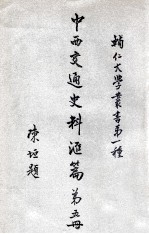 輔仁大學叢書第一種
中西交通史料滙篇第五冊
陳垣題